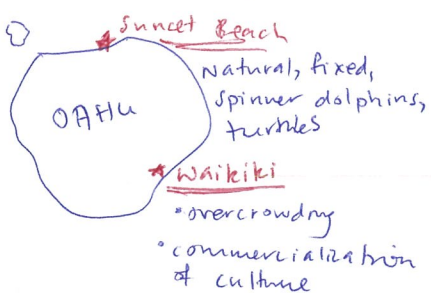 Sunset Beach
Natural, fixed,
Spinner dolphins,
turtles
OAHU
Waikiki
•overcrowdng
•commercialization
of culture